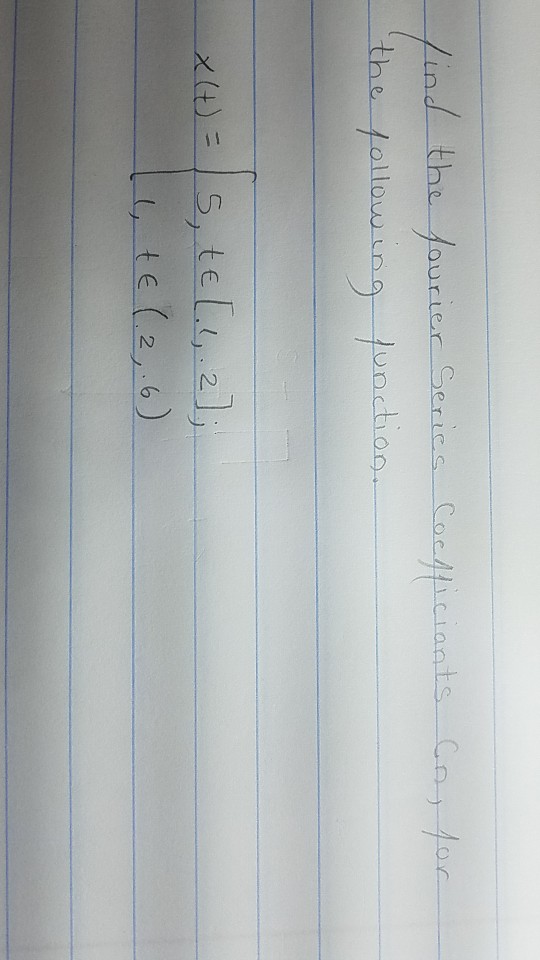 find the fourier Series Coefficiants Cn, for
the following function.
x(t) = { 5, t ∈ [.1, .2];
1, t ∈ (.2, .6)